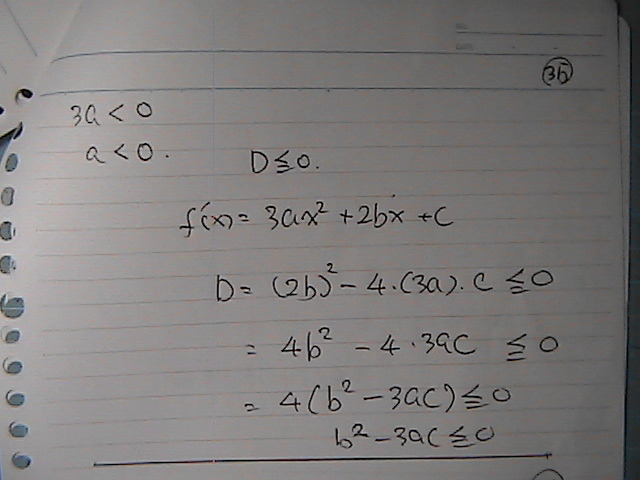 3b
3a < 0
a < 0.
D ≦ 0.
f'(x) = 3ax² + 2bx + C
D = (2b)² - 4·(3a)·C ≦ 0
= 4b² - 4·3aC ≦ 0
= 4(b² - 3aC) ≦ 0
b² - 3aC ≦ 0